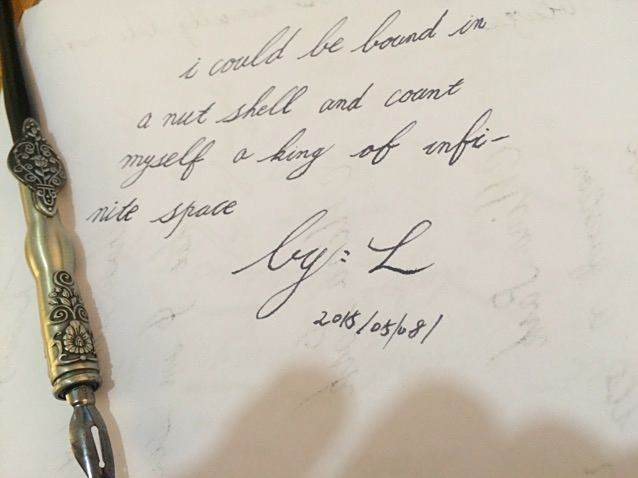 i could be bound in
a nut shell and count
myself a king of infi-
nite space
by: L
2015/05/08/